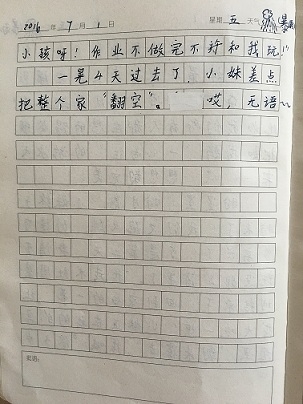 2016年7月1日 星期五 天气
小孩呀！作业不做完不许和我玩！”
一晃4天过去了，小妹差点
把整个家“翻空”。 哎，无语